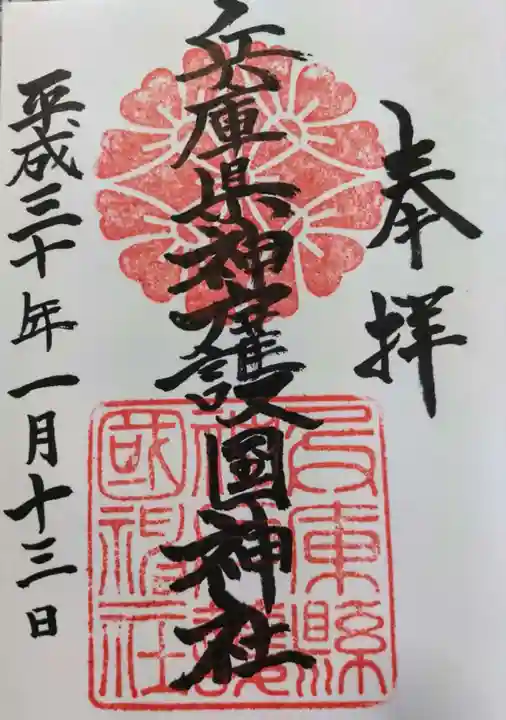 奉拝
兵庫県神戸護国神社
平成三十年一月十三日
兵庫縣
神戸護
國神社